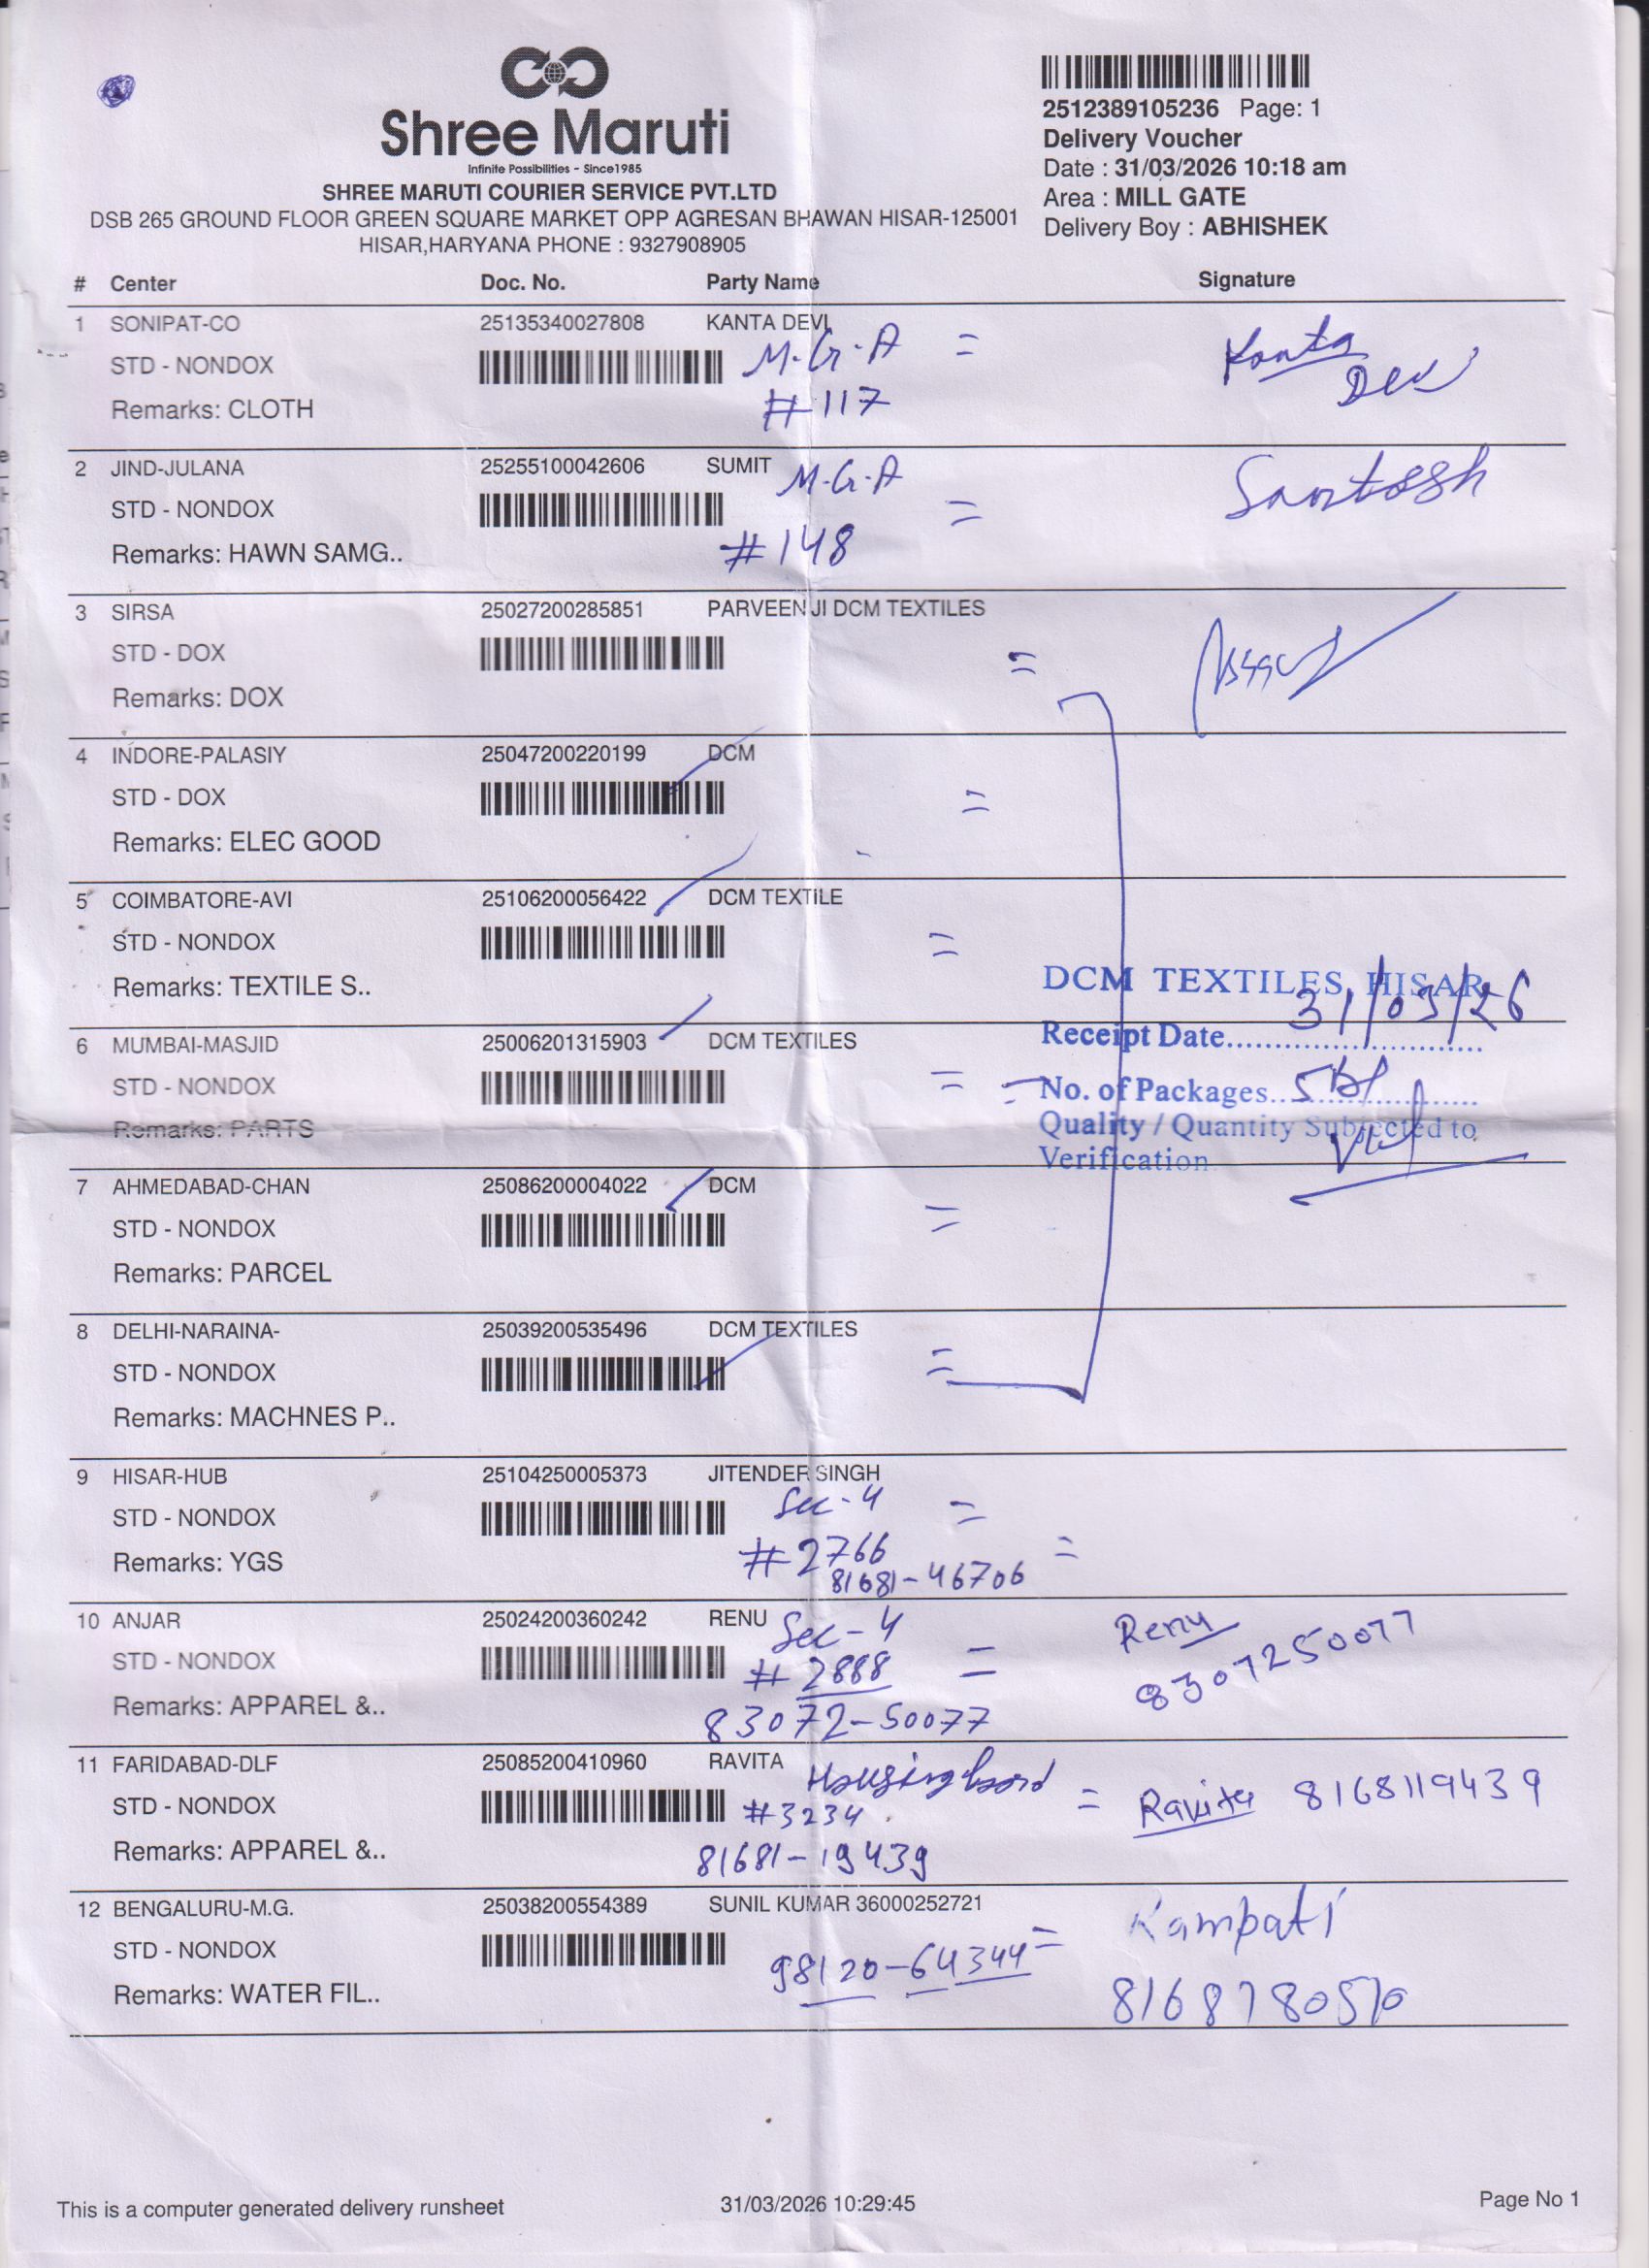 Shree Maruti
Infinite Possibilities - Since1985
SHREE MARUTI COURIER SERVICE PVT.LTD
DSB 265 GROUND FLOOR GREEN SQUARE MARKET OPP AGRESAN BHAWAN HISAR-125001
HISAR,HARYANA PHONE : 9327908905
2512389105236 Page: 1
Delivery Voucher
Date : 31/03/2026 10:18 am
Area : MILL GATE
Delivery Boy : ABHISHEK
# Center Doc. No. Party Name Signature
1 SONIPAT-CO 25135340027808 KANTA DEVI
STD - NONDOX M.G.A = Kanta Devi
Remarks: CLOTH #117
2 JIND-JULANA 25255100042606 SUMIT M.G.A
STD - NONDOX = Santosh
Remarks: HAWN SAMG.. #148
3 SIRSA 25027200285851 PARVEEN JI DCM TEXTILES
STD - DOX =
Remarks: DOX
4 INDORE-PALASIY 25047200220199 DCM
STD - DOX =
Remarks: ELEC GOOD
5 COIMBATORE-AVI 25106200056422 DCM TEXTILE
STD - NONDOX =
Remarks: TEXTILE S..
DCM TEXTILES, HISAR
Receipt Date 31/03/26
6 MUMBAI-MASJID 25006201315903 DCM TEXTILES
STD - NONDOX =
No. of Packages
Remarks: PARTS
Quality / Quantity Subjected to
Verification
7 AHMEDABAD-CHAN 25086200004022 DCM
STD - NONDOX =
Remarks: PARCEL
8 DELHI-NARAINA- 25039200535496 DCM TEXTILES
STD - NONDOX =
Remarks: MACHNES P..
9 HISAR-HUB 25104250005373 JITENDER SINGH
STD - NONDOX Sec-4 =
Remarks: YGS #2766 =
81681-46706
10 ANJAR 25024200360242 RENU Sec-4 Renu
STD - NONDOX #2888 = 8307250077
Remarks: APPAREL &.. 83072-50077
11 FARIDABAD-DLF 25085200410960 RAVITA Housing board
STD - NONDOX #3234 = Ravita 8168119439
Remarks: APPAREL &.. 81681-19439
12 BENGALURU-M.G. 25038200554389 SUNIL KUMAR 36000252721
STD - NONDOX 98120-64344 = Rampati
Remarks: WATER FIL.. 8168780570
This is a computer generated delivery runsheet 31/03/2026 10:29:45 Page No 1